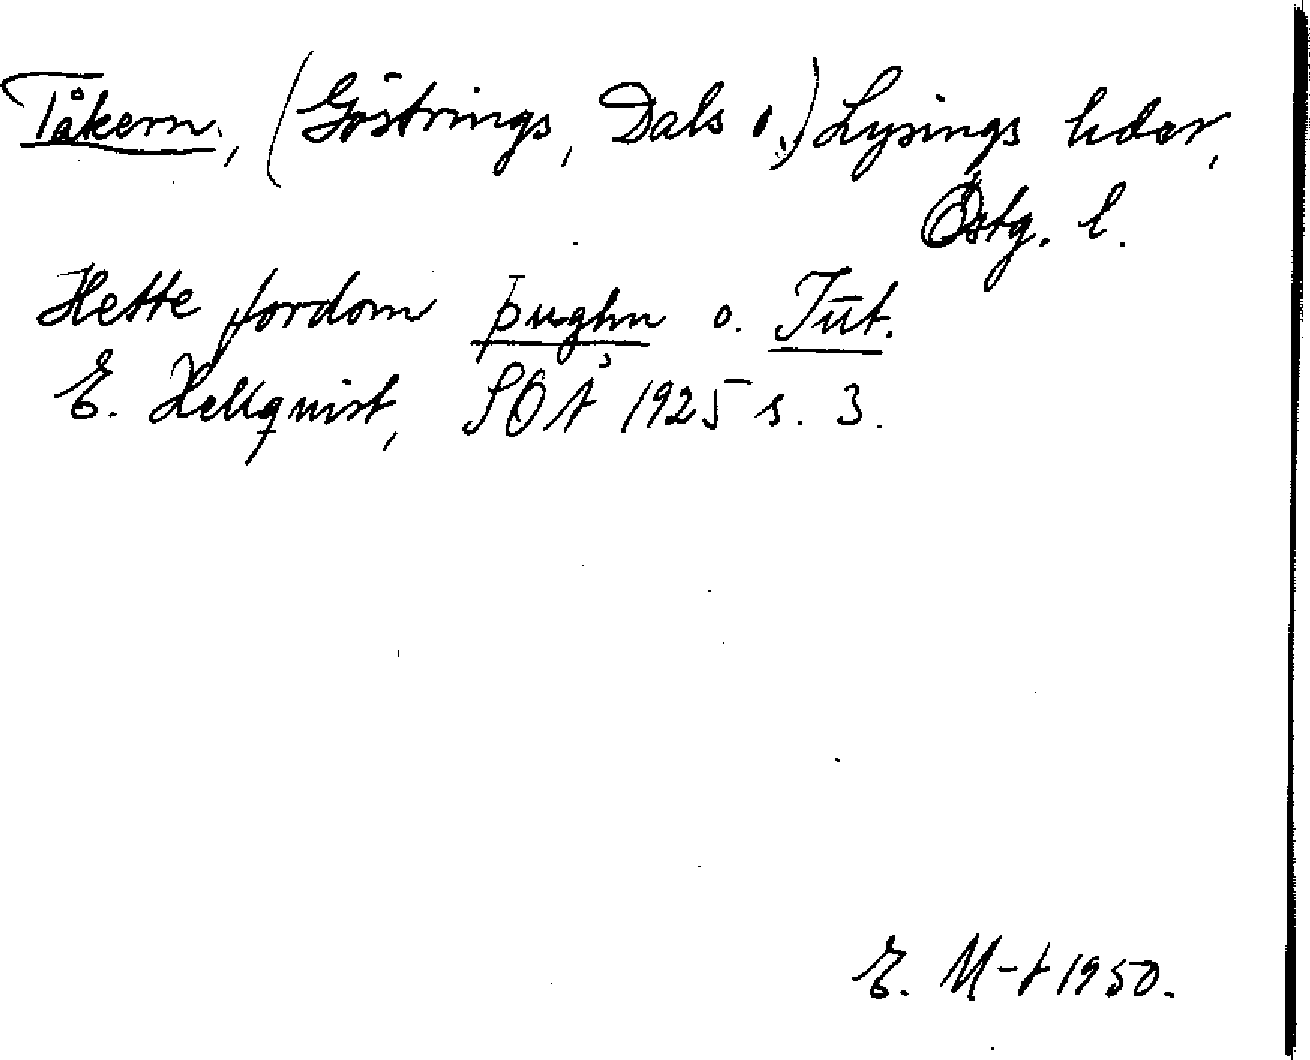 Tåkern, (Göstrings, Dals o.) Lysings hdar,
Östg. l.
Hette fordom þughn o. Tūt.
E. Hellquist, SOÅ 1925 s. 3.
E. M-t 1950.